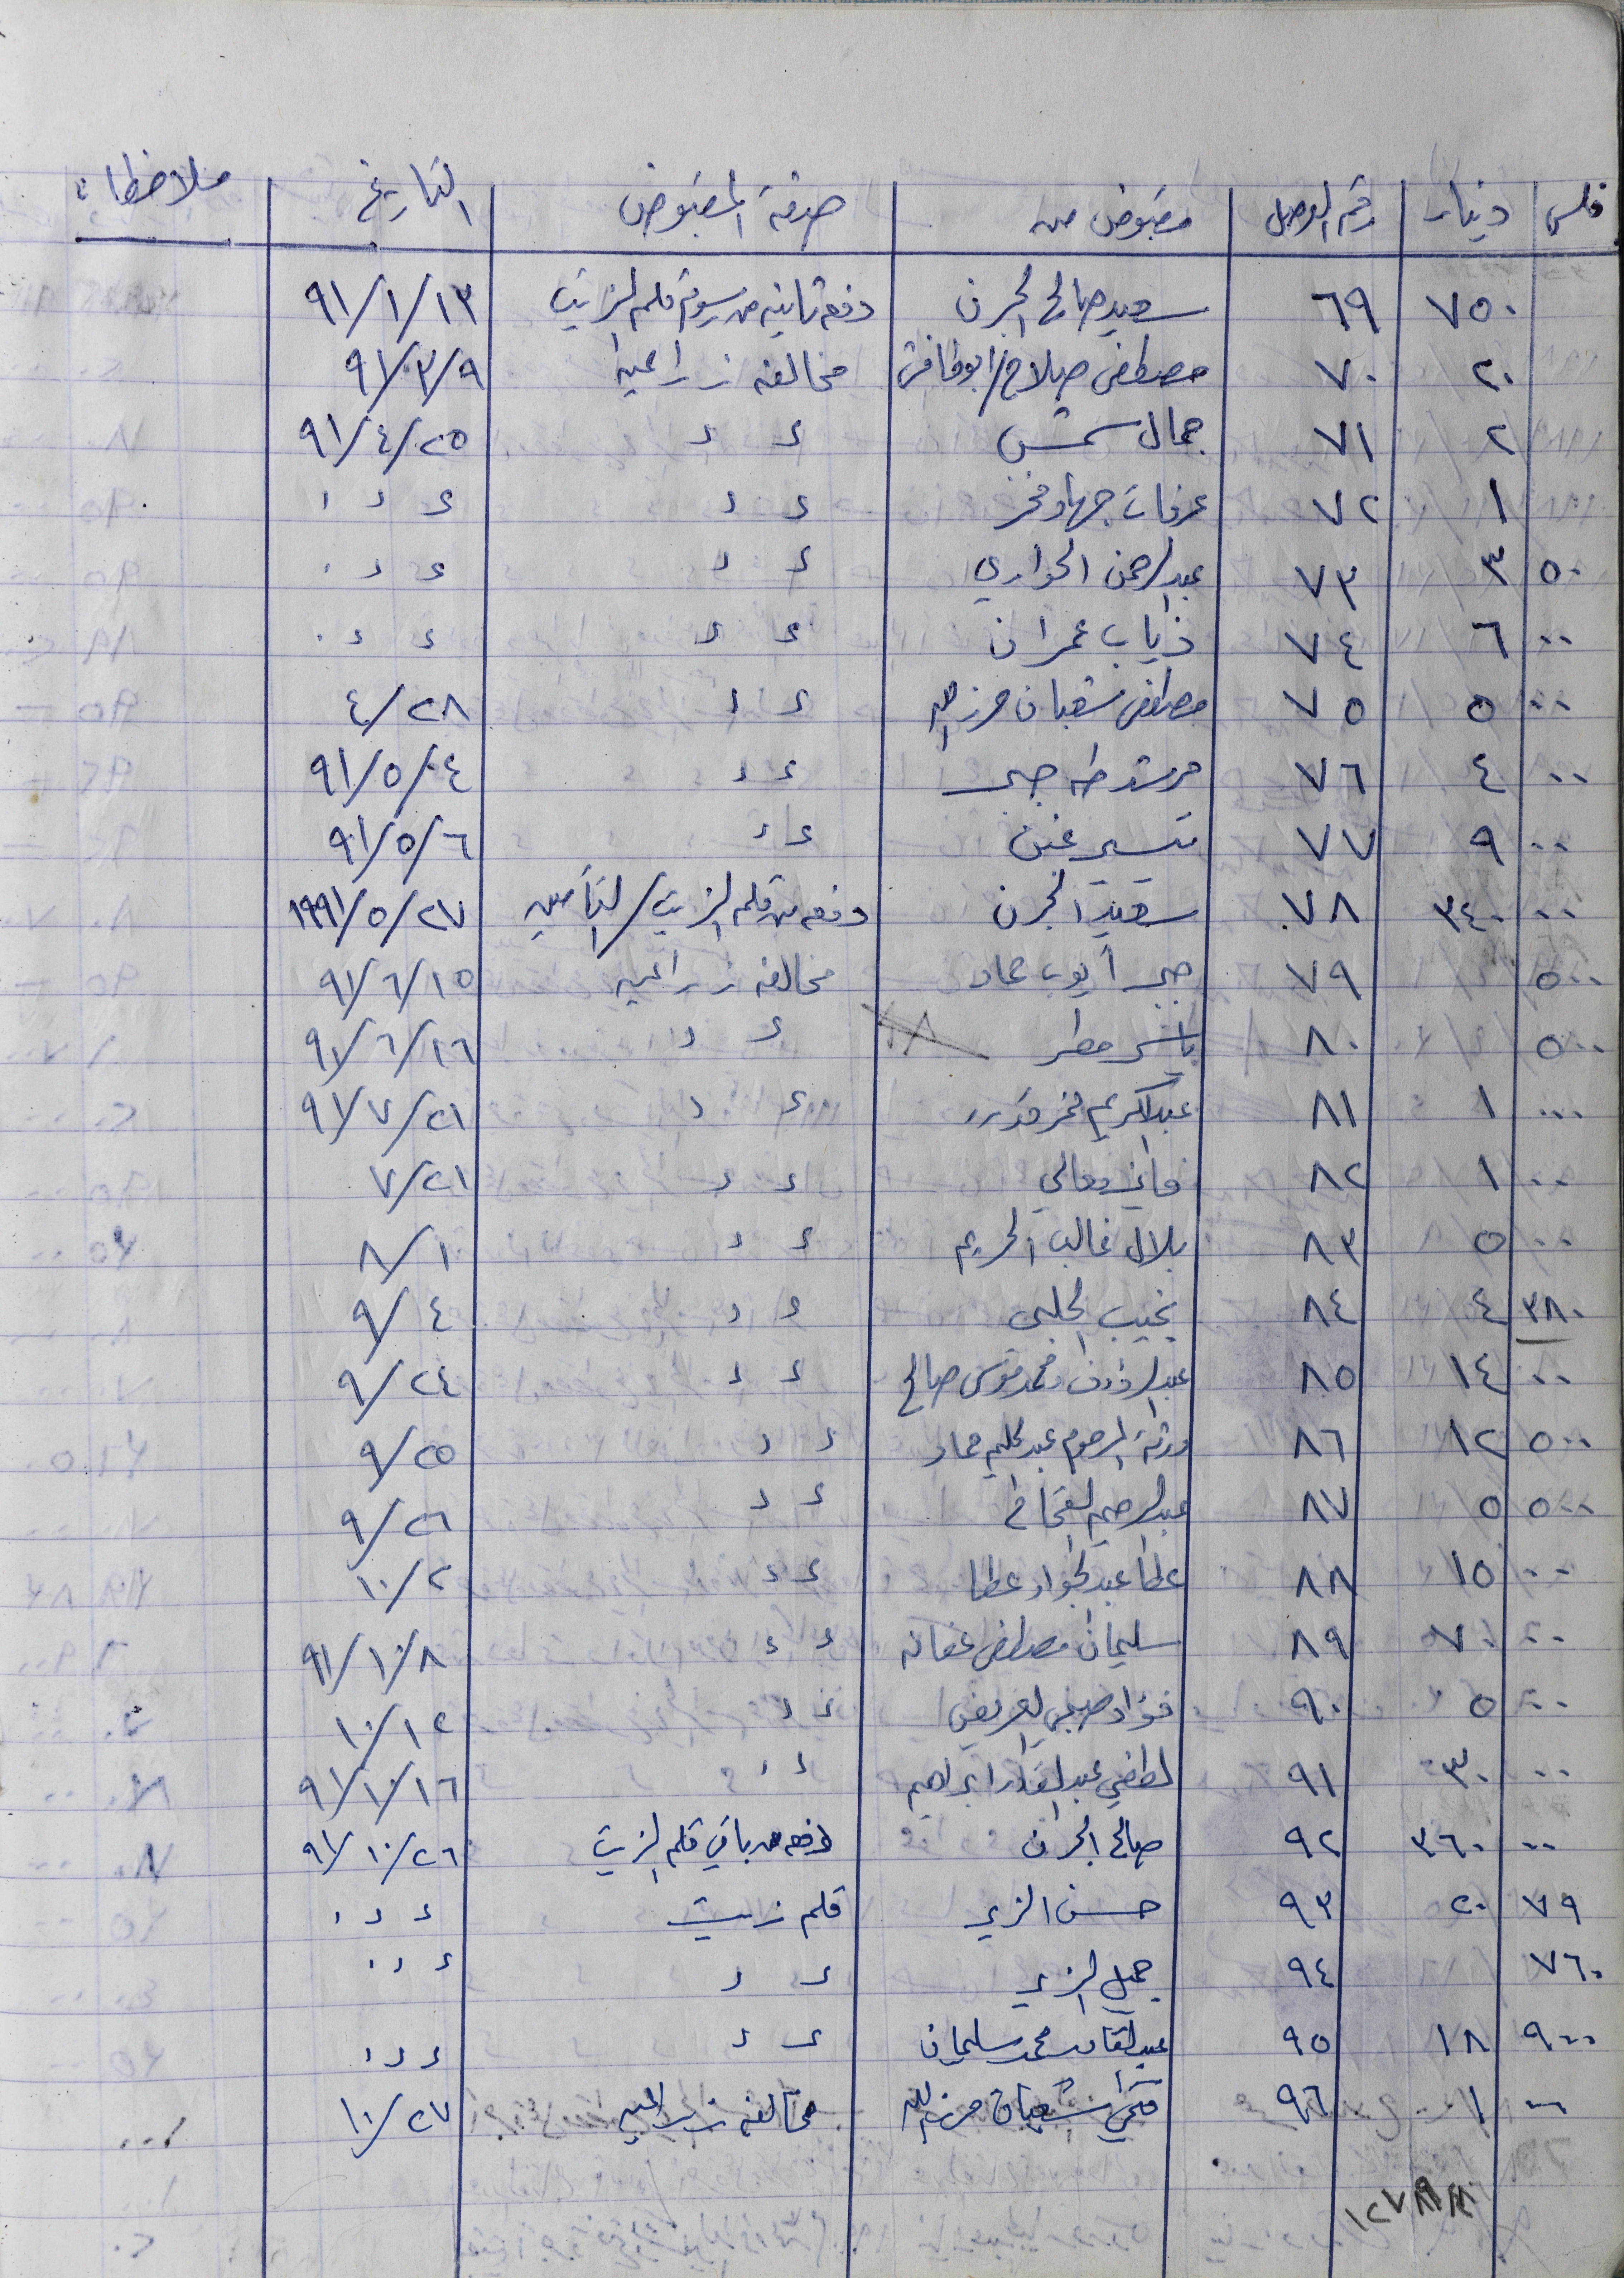 فلس دينار رقم الوصل مقبوض من صفة المقبوض التاريخ ملاحظات
٧٥٠ ٦٩ سعيد صالح الجرن دفعة ثانية من رسوم قلم الزيت ٩١/١/١٣
٢٠ ٧٠ مصطفى صلاح / مخالفه زراعيه ٩١/٣/٩
٢ ٧١ جمال شمس ء ء ٩١/٤/٢٥
١ ٧٢ عرفات جهاد فخر ء ء ء ء ء
٥٠ ٣ ٧٣ عبد الرحمن الحواري ء ء ء ء ء
٠٠ ٦ ٧٤ ذياب عمران ء ء ء ء ء
٠٠ ٥ ٧٥ مصطفى شعبان حرز الله ء ء ٤/٢٨
٠٠ ٤ ٧٦ مرشد طه جبر ء ء ٩١/٥/٠٤
٠٠ ٩ ٧٧ تيسير غيث ء ء ٩١/٥/٦
٠٠ ٣٤٠ ٧٨ سعيد الجرن دفعه من قلم الزيت / التأمين ١٩٩١/٥/٢٧
٥٠٠ ٧٩ جبر أيوب حماد مخالفه زراعيه ٩١/٦/١٥
٥٠٠ ٨٠ ياسر مطر ء ء ٩١/٦/١٦
٠٠٠ ١ ٨١ عبد الكريم فخر ء ء ٩١/٧/٢١
٠٠ ١ ٨٢ معالي ء ء ٧/٢١
٠٠ ٥ ٨٣ بلال غالب الحريم ء ء ٨/١
٣٨٠ ٤ ٨٤ نجيب الحلبي ء ء ٩/٤
٠٠ ١٤ ٨٥ عبد الرؤوف ومحمد موسى صالح ء ء ٩/٢٤
٥٠٠ ١٢ ٨٦ ورثة المرحوم عبد الحليم حماد ء ء ٩/٢٥
٥٠٠ ٥ ٨٧ عبد الرحيم ء ء ٩/٢٦
٠٠ ١٥ ٨٨ عطا عبد الجواد عطا ء ء ١٠/٢
٠٠ ٧٠ ٨٩ سليمان مصطفى عفانه ء ء ٩١/١٠/٨
٠٠ ٥ ٩٠ فؤاد صبحي ء ء ١٠/١٢
٠٠ ٣٠ ٩١ لطفي عبد القادر ابراهيم ء ء ٩١/١٠/١٦
٠٠ ٣٦٠ ٩٢ صالح الجرن دفعه من باقي قلم الزيت ٩١/١٠/٢٦
٧٩ ٢٠ ٩٣ حسن الزير قلم زيت ء ء ء
٧٦٠ ٩٤ جميل الزير ء ء ء ء ء
٩٠٠ ١٨ ٩٥ عبد القادر محمد سليمان ء ء ء ء ء
٠٠ ١ ٩٦ فتحي شعبان حرز الله مخالفه زراعيه ١٠/٢٧